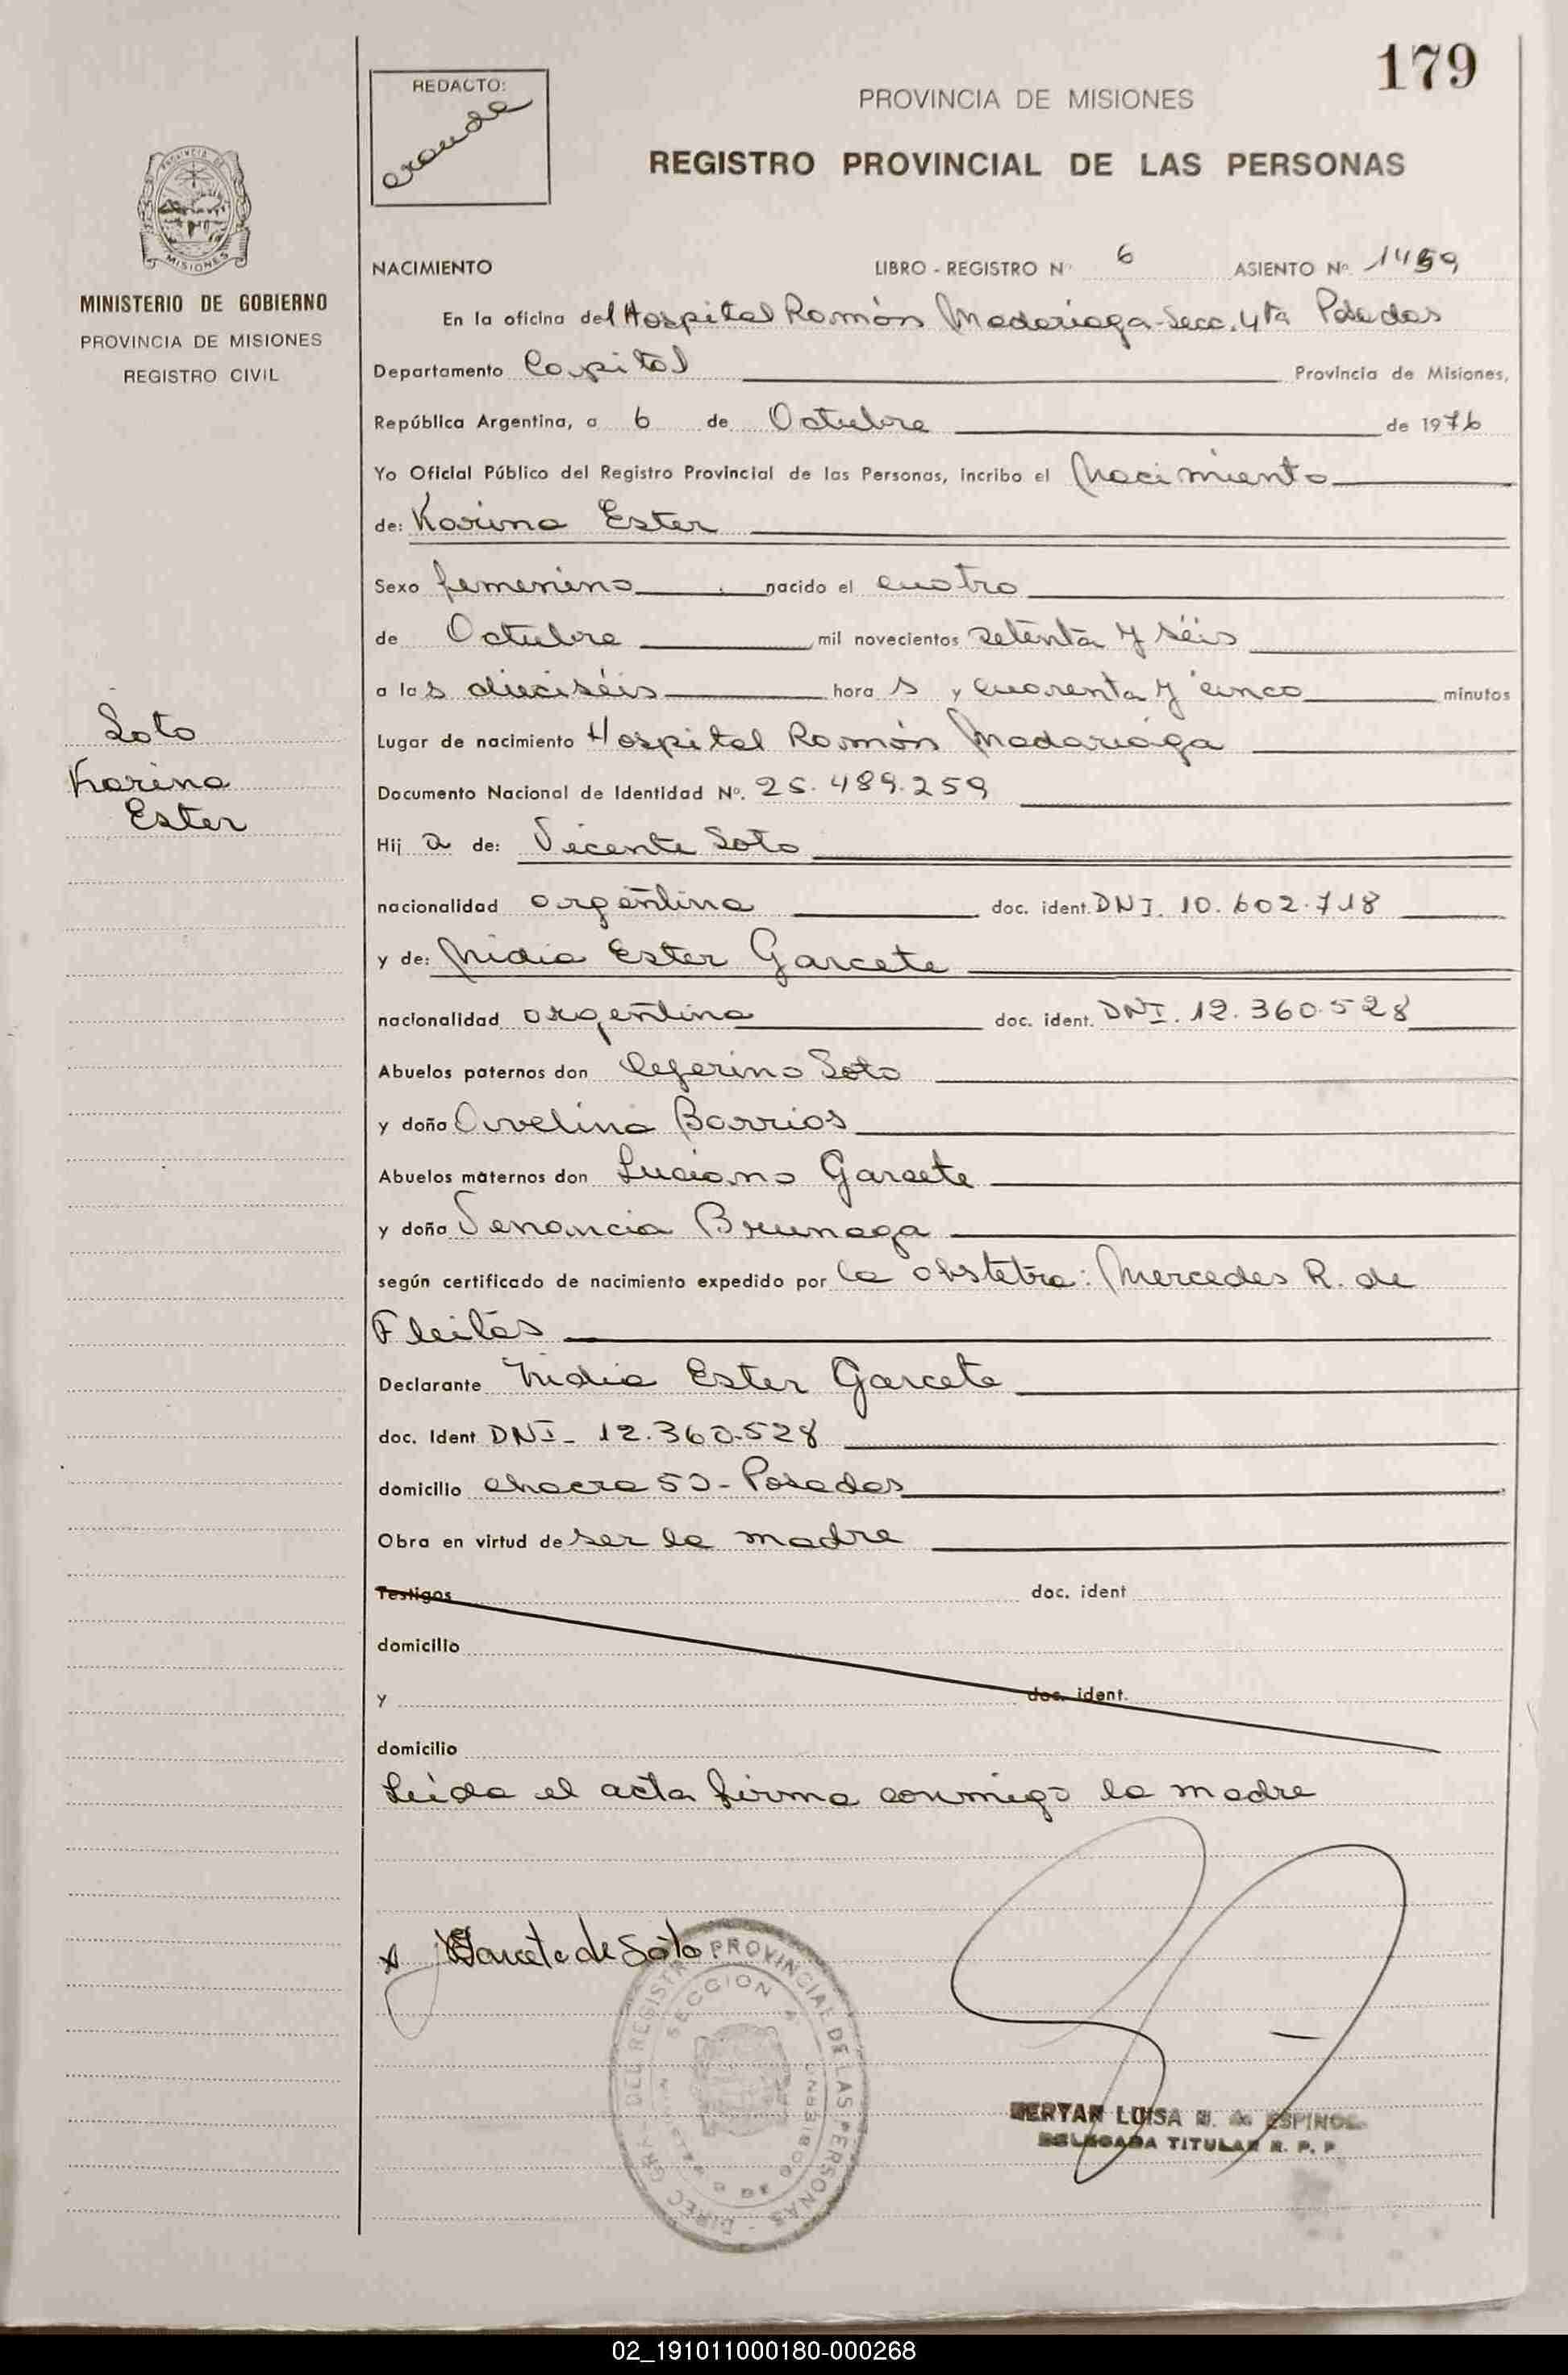 179
REDACTO:
PROVINCIA DE MISIONES
REGISTRO PROVINCIAL DE LAS PERSONAS
MINISTERIO DE GOBIERNO
PROVINCIA DE MISIONES
REGISTRO CIVIL
NACIMIENTO LIBRO - REGISTRO Nº 6 ASIENTO Nº 1459
En la oficina del Hospital Ramón Madariaga - Secc. 4ta Posadas
Departamento Capital Provincia de Misiones,
República Argentina, a 6 de Octubre de 1976
Yo Oficial Público del Registro Provincial de las Personas, incribo el Nacimiento
de: Karina Ester
Sexo femenino nacido el cuatro
de Octubre mil novecientos setenta y séis
a las dieciséis horas y cuarenta y cinco minutos
Soto
Karina
Ester
Lugar de nacimiento Hospital Ramón Madariaga
Documento Nacional de Identidad Nº. 25.489.259
Hija de: Vicente Soto
nacionalidad argentina doc. ident. DNI. 10.602.718
y de: Nidia Ester Garcete
nacionalidad argentina doc. ident. DNI. 12.360.528
Abuelos paternos don Ceferino Soto
y doña Avelina Barrios
Abuelos maternos don Luciano Garcete
y doña Venancia Brunaga
según certificado de nacimiento expedido por la obstetra: Mercedes R. de
Fleitas
Declarante Nidia Ester Garcete
doc. Ident DNI - 12.360.528
domicilio chacra 50 - Posadas
Obra en virtud de ser la madre
Testigos doc. ident
domicilio
y doc. ident.
domicilio
Leída el acta firma conmigo la madre
Garcete de Soto
DIREC. GRAL. DEL REGISTRO PROVINCIAL DE LAS PERSONAS
SECCION
LUISA
DELEGADA TITULAR R. P. P.
02_191011000180-000268